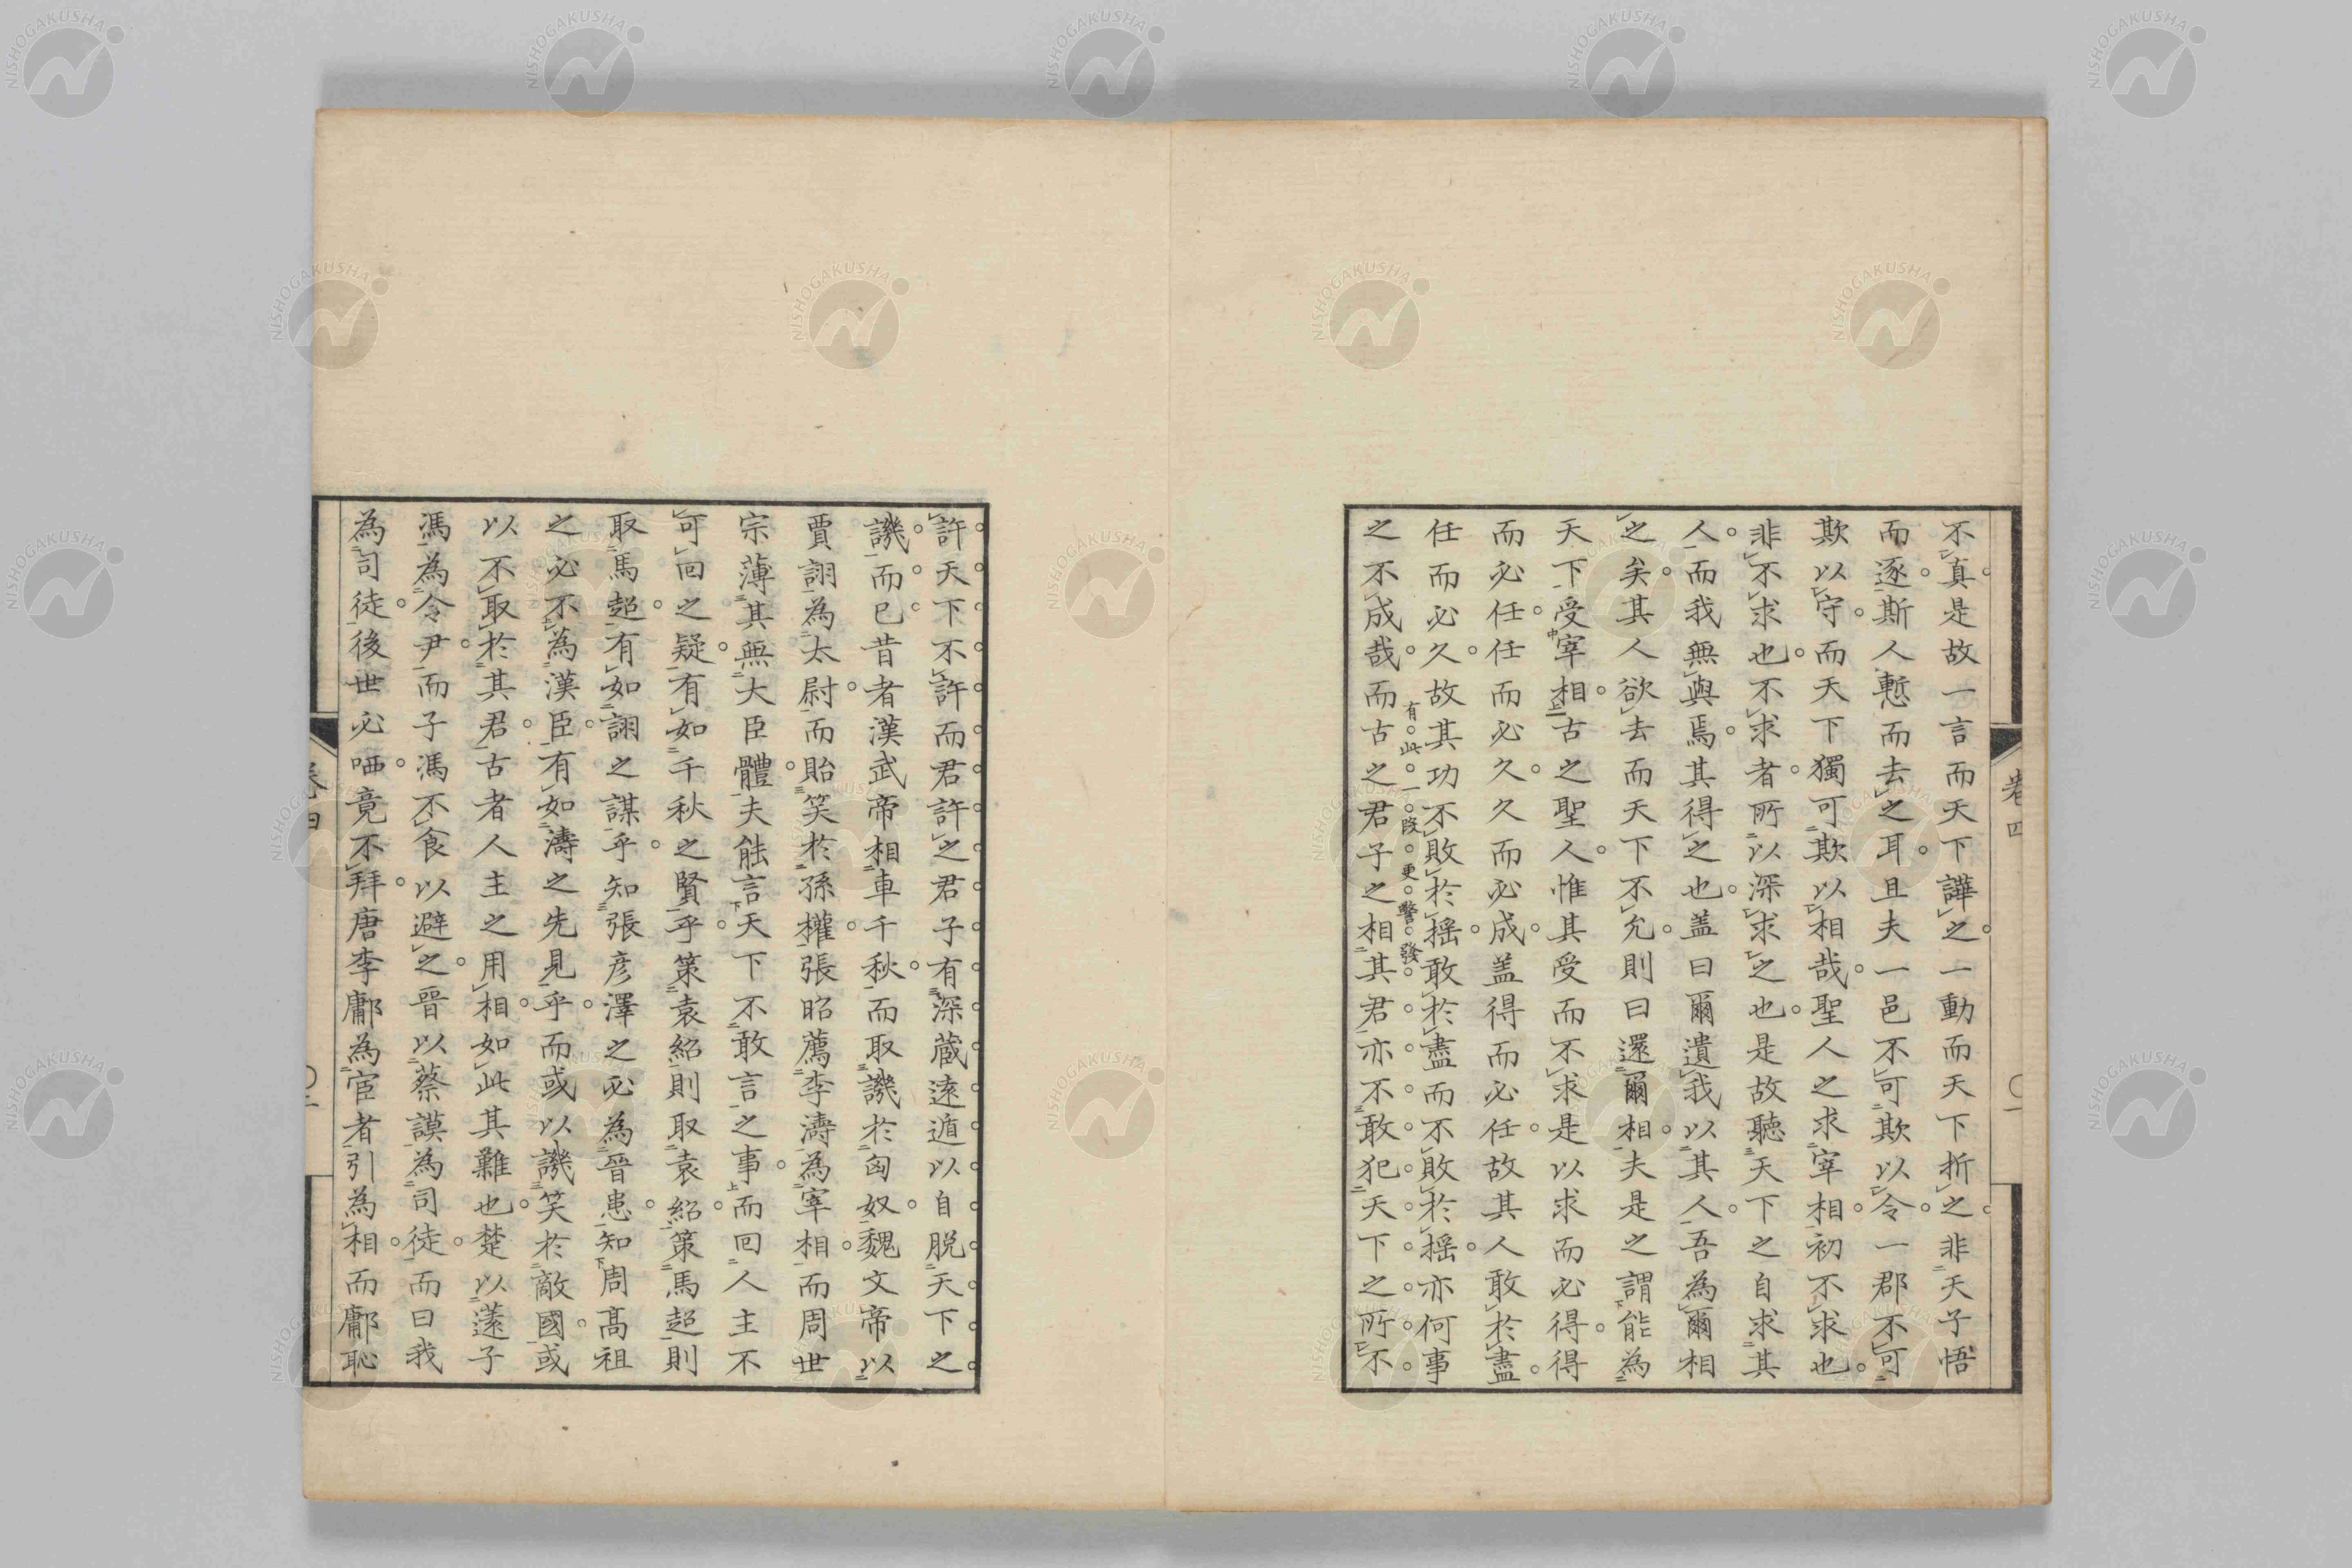 不真是故一言而天下譁之一動而天下折之非天子悟
而逐斯人慙而去之耳且夫一邑不可欺以令一郡不可
欺以守而天下獨可欺以相哉聖人之求宰相初不求也
非不求也不求者所以深求之也是故聽天下之自求其
人而我無與焉其得之也盖曰爾遺我以其人吾為爾相
之矣其人欲去而天下不允則曰還爾相夫是之謂能為
天下受宰相古之聖人惟其受而不求是以求而必得得
而必任任而必久久而必成盖得而必任故其人敢於盡
任而必久故其功不敗於揺敢於盡而不敗於揺亦何事
之不成哉而古之君子之相其君亦不敢犯天下之所不
有此一段更警發
卷四
許天下不許而君許之君子有深蔵遠遁以自脱天下之
譏而已昔者漢武帝相車千秋而取譏於匈奴魏文帝以
賈詡為太尉而貽笑於孫權張昭薦李濤為宰相而周世
宗薄其無大臣體夫能言天下不敢言之事而回人主不
可回之疑有如千秋之賢乎策袁紹則取袁紹策馬超則
取馬超有如詡之謀乎知張彦澤之必為晉患知周髙祖
之必不為漢臣有如濤之先見乎而或以譏笑於敵國或
以不取於其君古者人主之用相如此其難也楚以薳子
馮為令尹而子馮不食以避之晉以蔡謨為司徒而曰我
為司徒後世必哂竟不拜唐李鄘為宦者引為相而鄘恥
卷四
NISHOGAKUSHA